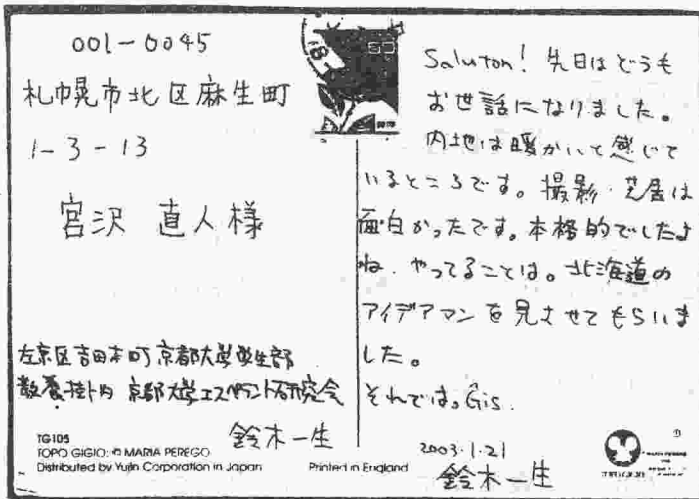 001-0045
札幌市北区麻生町
1-3-13
宮沢 直人様
左京区吉田本町京都大学学生部
教養掛内 京都大学エスペラント研究会
鈴木一生
TG105
TOPO GIGIO: © MARIA PEREGO
Distributed by Yujin Corporation in Japan
Printed in England
Saluton! 先日はどうも
お世話になりました。
内地は暖かいと感じて
いるところです。撮影・芝居は
面白かったです。本格的でしたよ
ね、やってることは。北海道の
アイデアマンを見させてもらいま
した。
それでは。Gis.
2003.1.21
鈴木一生